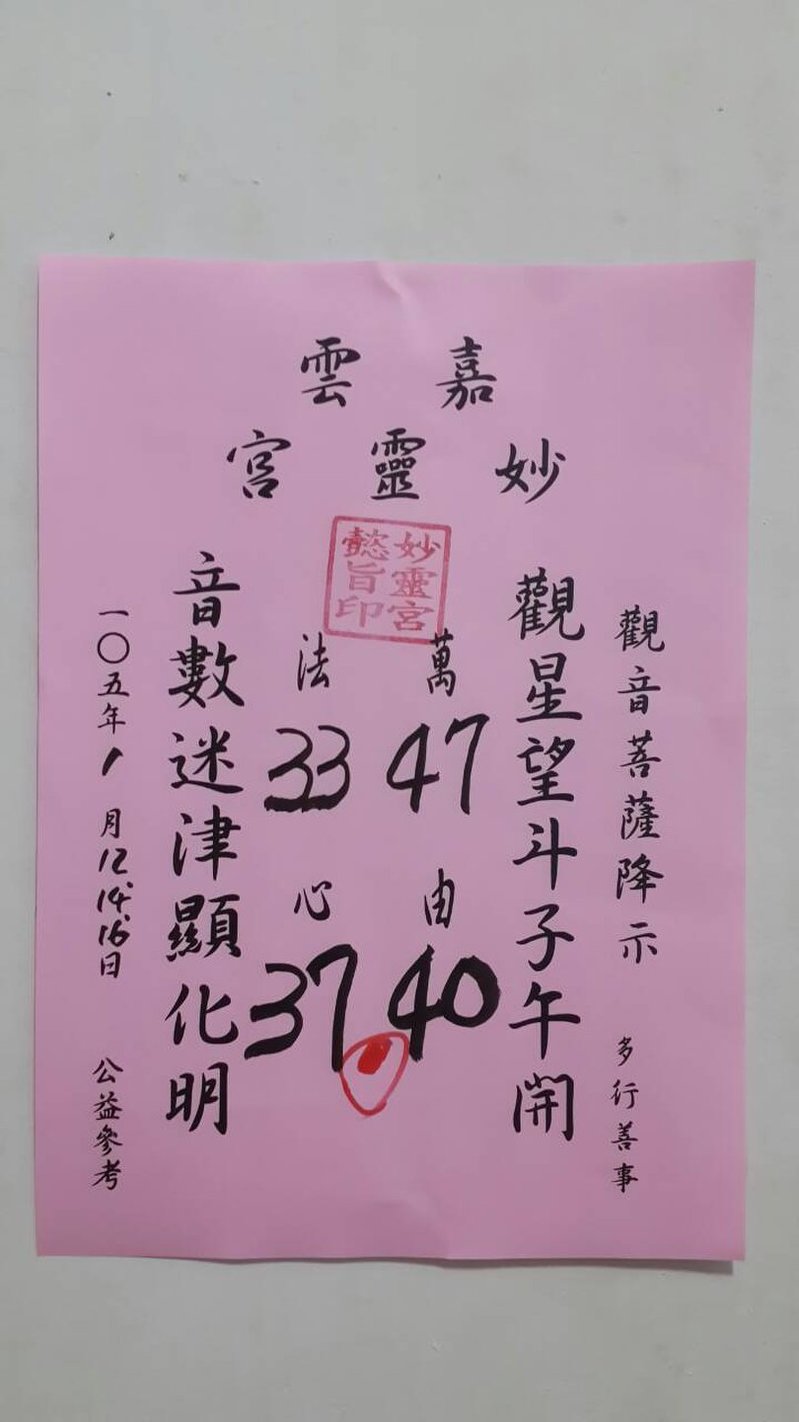 嘉雲
妙靈宮
妙靈宮
懿旨印
觀音菩薩降示 多行善事
觀星望斗子午開
萬 47 由 40
法 33 心 37
音數迷津顯化明
一〇五年 1 月 12. 14. 16日 公益參考